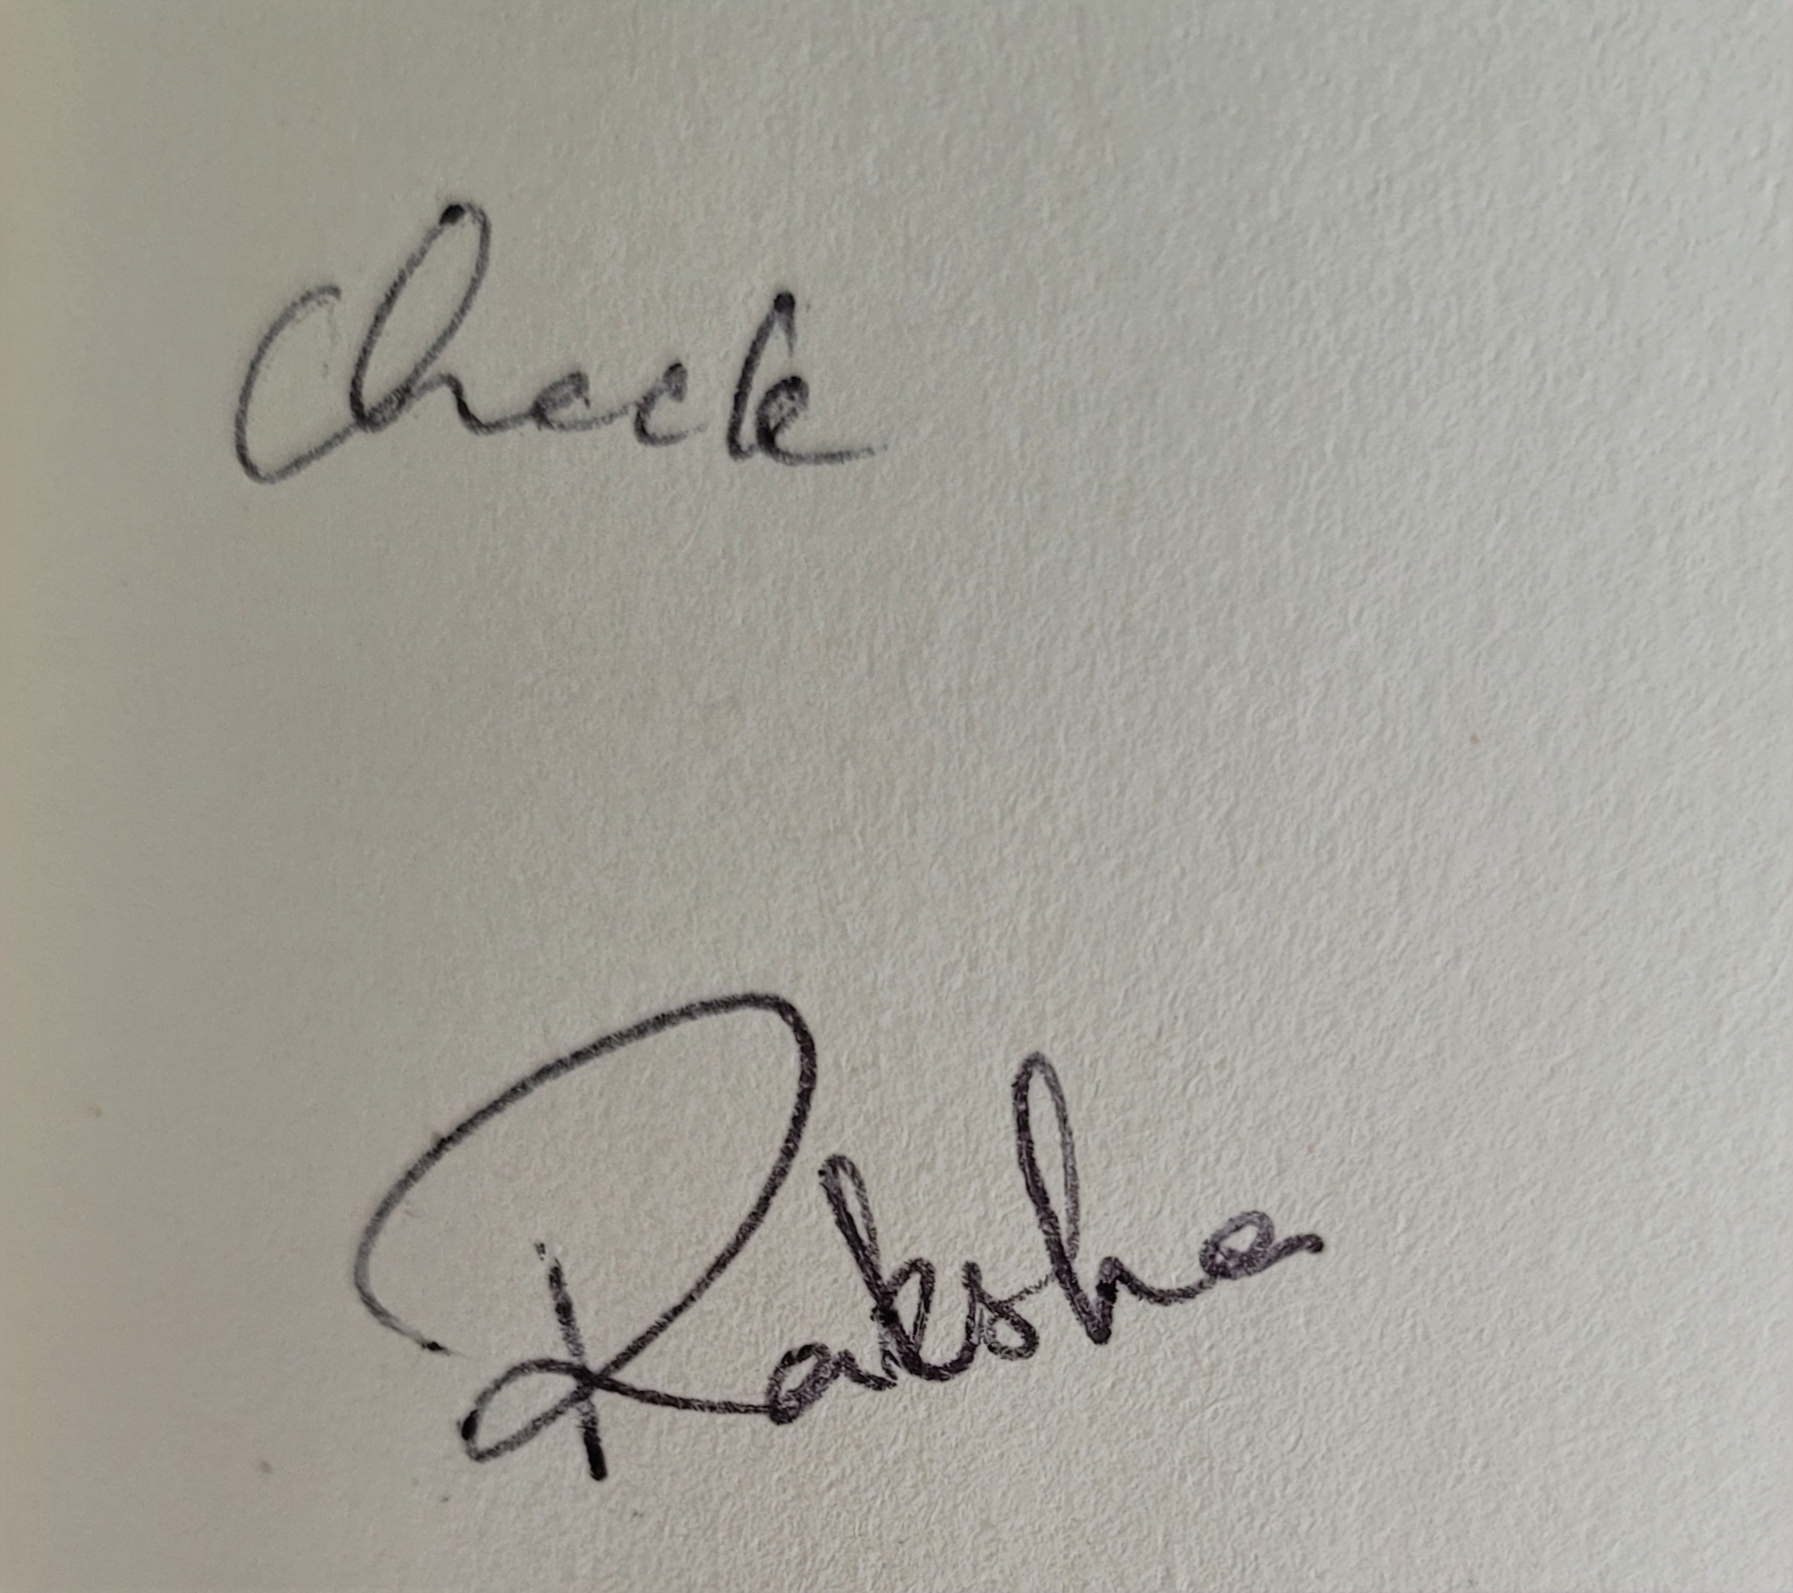 Check
Raksha